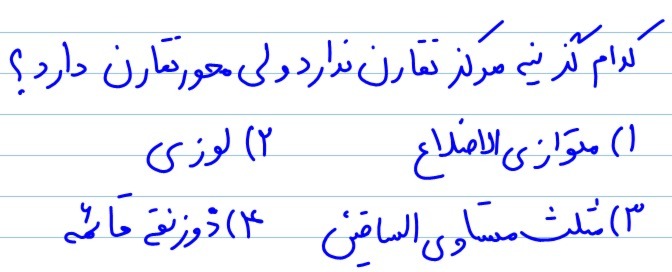 کدام گزینه مرکز تقارن ندارد ولی محور تقارن دارد؟
۱) متوازی الاضلاع ۲) لوزی
۳) مثلث متساوی الساقین ۴) ذوزنقه قائمه